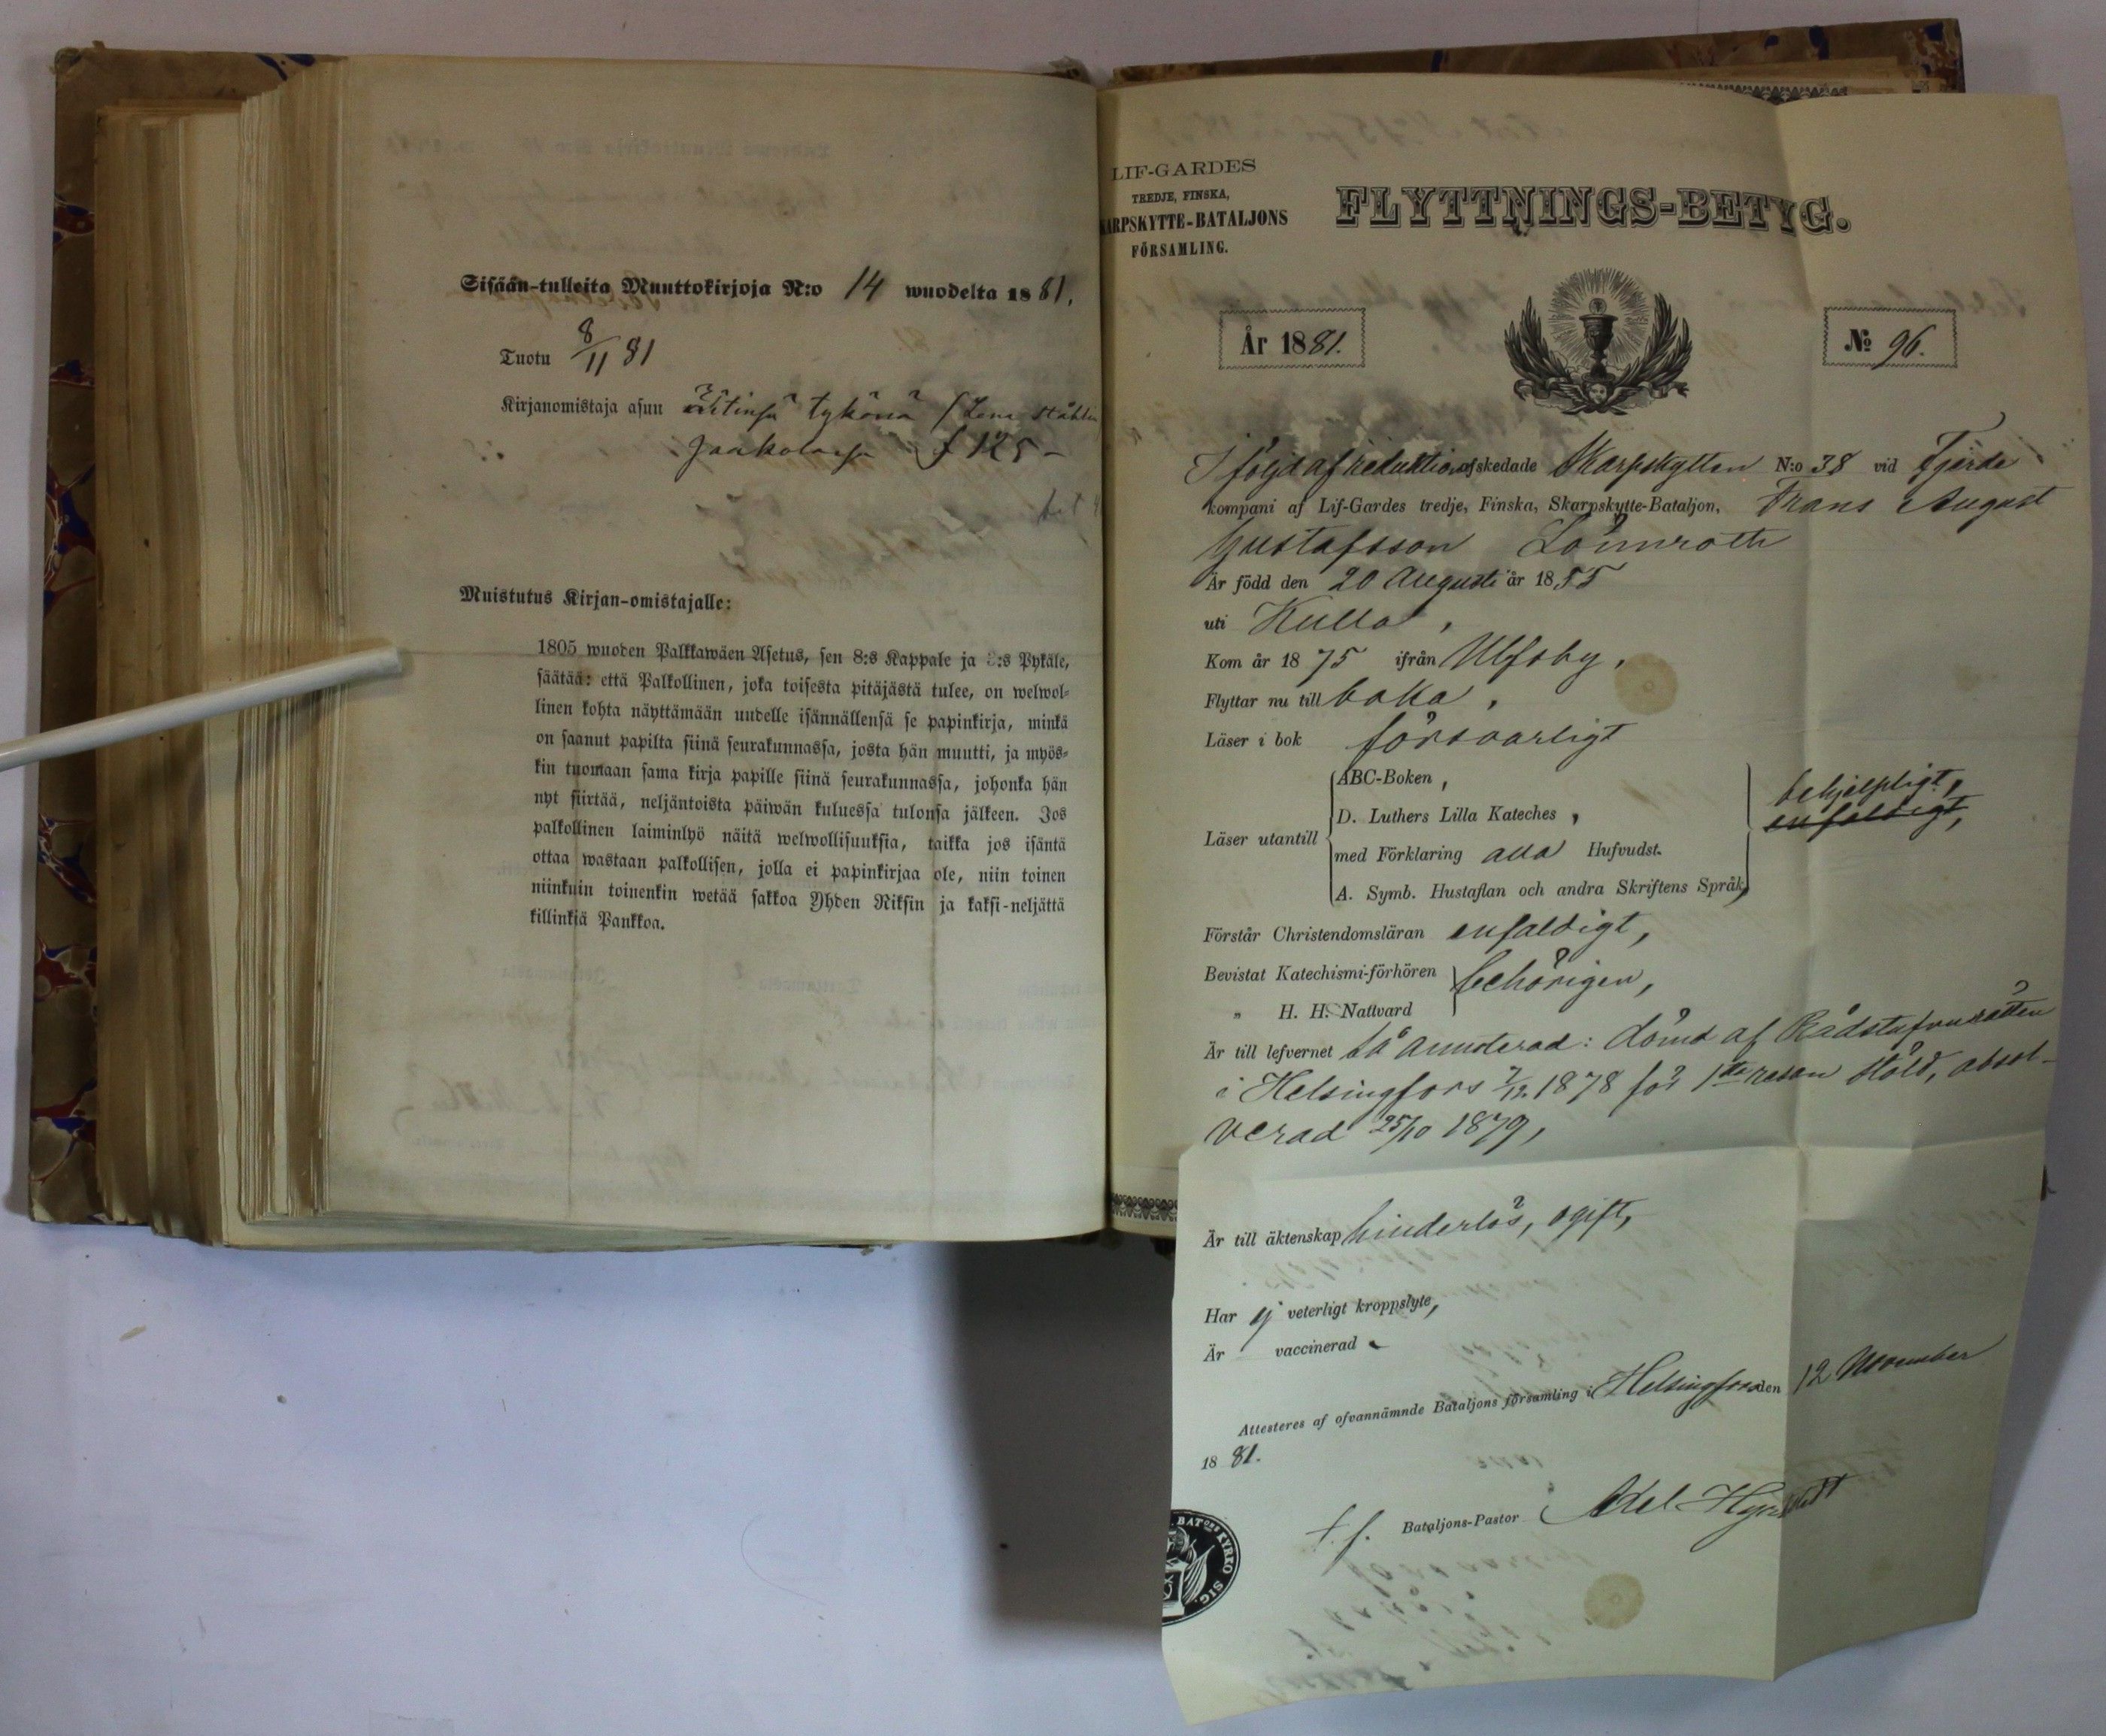 Sisään-tulleita Muuttokirjoja N:o 14 wuodelta 1881.
Tuotu 8/11 81
Kirjanomistaja asuu äitinsä tykönä (Lena Ståhl
Jaakolassa f 125 -
Muistutus Kirjan-omistajalle:
1805 wuoden Palkkawäen Asetus, sen 8:s Kappale ja :s Pykäle,
säätää: että Palkollinen, joka toisesta pitäjästä tulee, on welwol-
linen kohta näyttämään uudelle isännällensä se papinkirja, minkä
on saanut papilta siinä seurakunnassa, josta hän muutti, ja myös-
kin tuomaan sama kirja papille siinä seurakunnassa, johonka hän
nyt siirtää, neljäntoista päiwän kuluessa tulonsa jälkeen. Jos
palkollinen laiminlyö näitä welwollisuuksia, taikka jos isäntä
ottaa wastaan palkollisen, jolla ei papinkirjaa ole, niin toinen
niinkuin toinenkin wetää sakkoa Yhden Riksin ja kaksi-neljättä
killinkiä Pankkoa.
LIF-GARDES
TREDJE, FINSKA,
KARPSKYTTE-BATALJONS
FÖRSAMLING.
FLYTTNINGS-BETYG.
År 1881.
No 96.
I följd af reduktion afskedade Skarpskytten N:o 38 vid Fjerde
kompani af Lif-Gardes tredje, Finska, Skarpskytte-Bataljon, Frans August
Gustafsson Lönnroth
Är född den 20 Augusti år 1855
uti Kulla,
Kom år 1875 ifrån Ulfsby,
Flyttar nu till baka,
Läser i bok försvarligt
Läser utantill
ABC-Boken,
D. Luthers Lilla Kateches,
med Förklaring alla Hufvudst.
A. Symb. Hustaflan och andra Skriftens Språk,
behjelpligt,
enfaldigt,
Förstår Christendomsläran enfaldigt,
Bevistat Katechismi-förhören
" H. H. Nattvard
behörigen,
Är till lefvernet så annoterad: dömd af Rådstufvurätten
i Helsingfors 7/12 1878 för 1sta resan stöld, absol-
verad 25/10 1879,
Är till äktenskap hinderlös, ogift,
Har ej veterligt kroppslyte,
Är vaccinerad.
Attesteres af ofvannämnde Bataljons församling i Helsingfors den 12 November
1881.
t. f. Bataljons-Pastor Axel
BATONS KYRKO SIG.